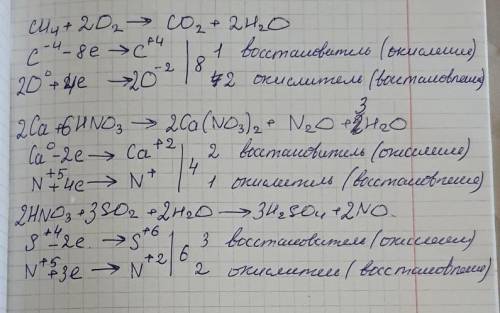 CH4 + 2O2 → CO2 + 2H2O
C⁻⁴ - 8e → C⁺⁴ | 8 | 1 восстановитель (окисление)
2O⁰ + 4e → 2O⁻² | 2 окислитель (восстановление)
2Ca + 6HNO3 → 2Ca(NO3)2 + N2O + 3H2O
Ca⁰ - 2e → Ca⁺² | 4 | 2 восстановитель (окисление)
N⁺⁵ + 4e → N⁺ | 1 окислитель (восстановление)
2HNO3 + 3SO2 + 2H2O → 3H2SO4 + 2NO
S⁺⁴ - 2e → S⁺⁶ | 6 | 3 восстановитель (окисление)
N⁺⁵ + 3e → N⁺² | 2 окислитель (восстановление)